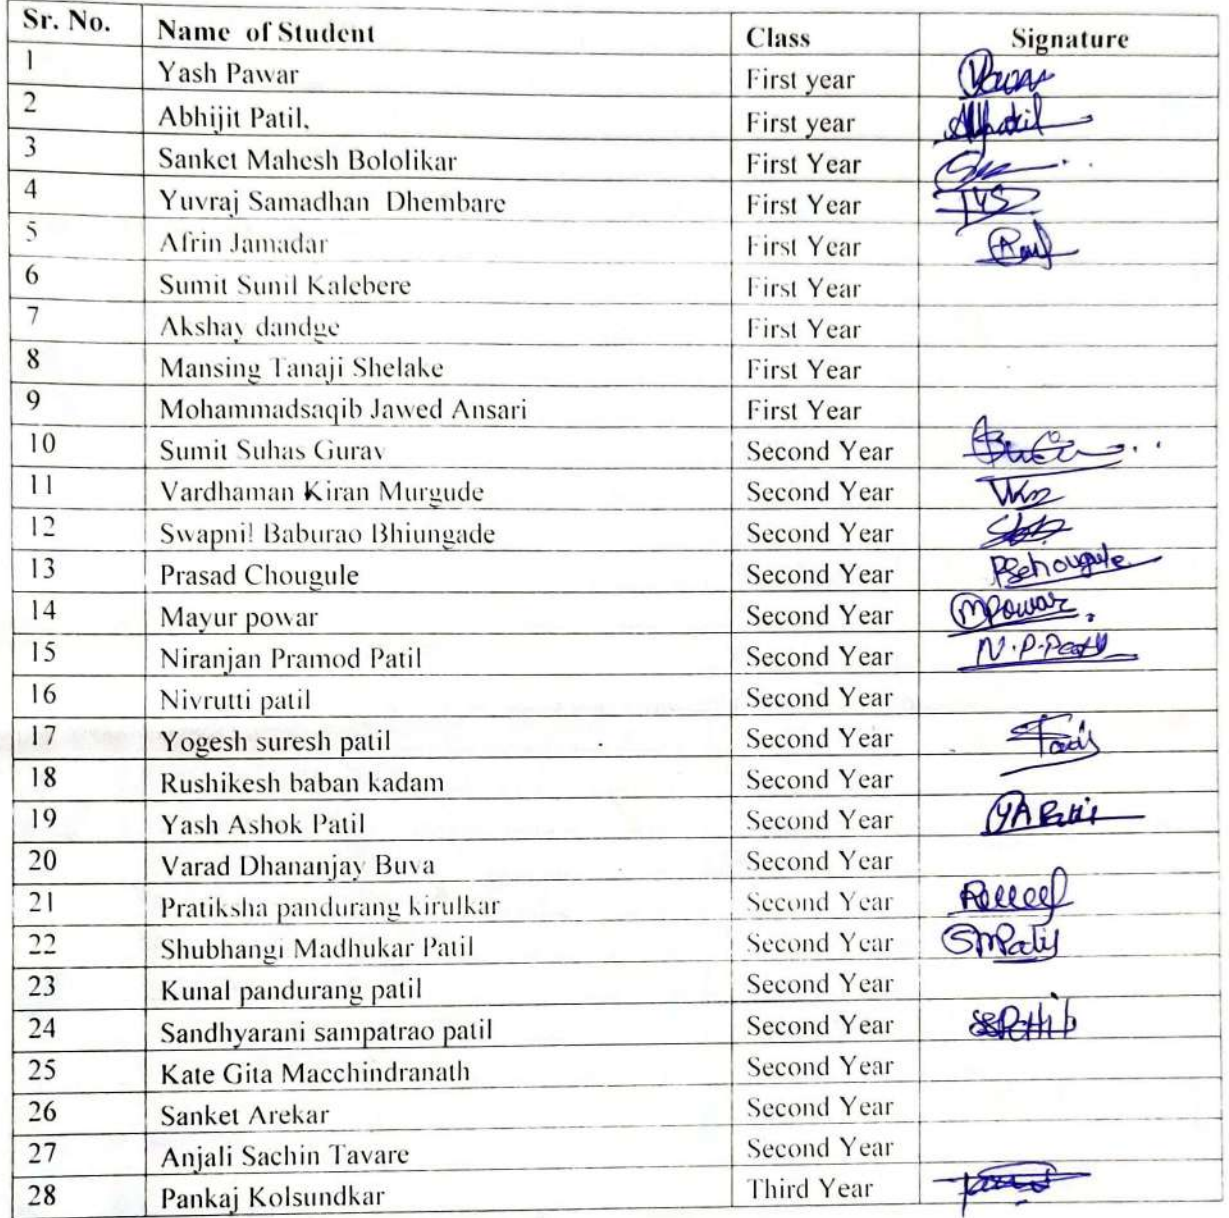 Sr. No. Name of Student Class Signature
1 Yash Pawar First year
2 Abhijit Patil. First year
3 Sanket Mahesh Bololikar First Year
4 Yuvraj Samadhan Dhembare First Year
5 Afrin Jamadar First Year
6 Sumit Sunil Kalebere First Year
7 Akshay dandge First Year
8 Mansing Tanaji Shelake First Year
9 Mohammadsaqib Jawed Ansari First Year
10 Sumit Suhas Gurav Second Year
11 Vardhaman Kiran Murgude Second Year
12 Swapnil Baburao Bhiungade Second Year
13 Prasad Chougule Second Year PSchougule
14 Mayur powar Second Year MPowar.
15 Niranjan Pramod Patil Second Year N.P.Patil
16 Nivrutti patil Second Year
17 Yogesh suresh patil Second Year
18 Rushikesh baban kadam Second Year
19 Yash Ashok Patil Second Year YAPatil
20 Varad Dhananjay Buva Second Year
21 Pratiksha pandurang kirulkar Second Year
22 Shubhangi Madhukar Patil Second Year SMPatil
23 Kunal pandurang patil Second Year
24 Sandhyarani sampatrao patil Second Year SSPatil
25 Kate Gita Macchindranath Second Year
26 Sanket Arekar Second Year
27 Anjali Sachin Tavare Second Year
28 Pankaj Kolsundkar Third Year